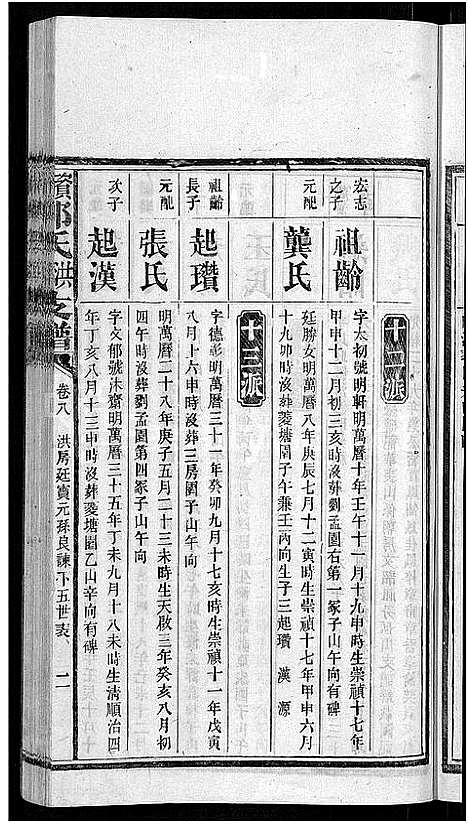 十二派
宏志之子
祖齡
字太初號明軒明萬曆十年壬午十一月十九申時生崇禎十七年
甲申十二月初三亥時沒葬劉孟園右第一冢子山午向有碑
元配
龔氏
廷勝女明萬曆八年庚辰七月十二寅時生崇禎十七年甲申六月
十九卯時沒葬菱塘園子午兼壬丙向生子三起瓚 漢 源
十三派
祖齡長子
起瓚
字德彭明萬曆三十一年癸卯九月十七亥時生崇禎十一年戊寅
八月十六申時沒葬三房園子山午向
元配
張氏
明萬曆二十八年庚子五月二十三未時生天啟三年癸亥八月初
四午時沒葬劉孟園第四冢子山午向
次子
起漢
字文郁號沐齋明萬曆三十五年丁未九月十八未時生清順治四
年丁亥八月十三申時沒葬菱塘園乙山辛向有碑
資邱氏洪支譜
卷八 洪房廷寶元孫良諫下五世表 二